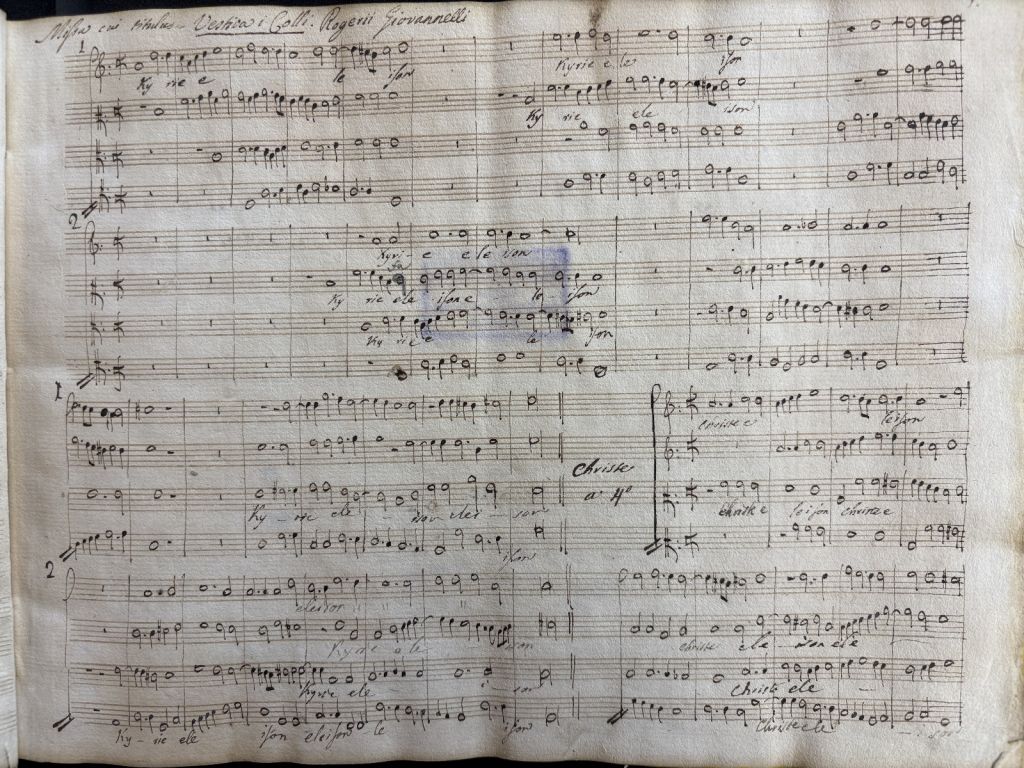 Missa cui titulus - Vestiva i Colli. Rogerii Giovannelli
1
Ky rie e le ison
Kyrie e le ison
Ky rie ele ison
2
Kyri - e e le ison
Ky rie ele ison e - le ison
Ky rie e le ison
1
Christe e leison
Christe
a 4º
Ky - rie ele - ison elei - son
christe e leison christe e
ison
2
eleison
Kyrie e le - ison
christe ele - ison ele
Kyrie ele - i - son
Christe ele -
Ky - rie ele ison eleison le ison
Christe ele - ison